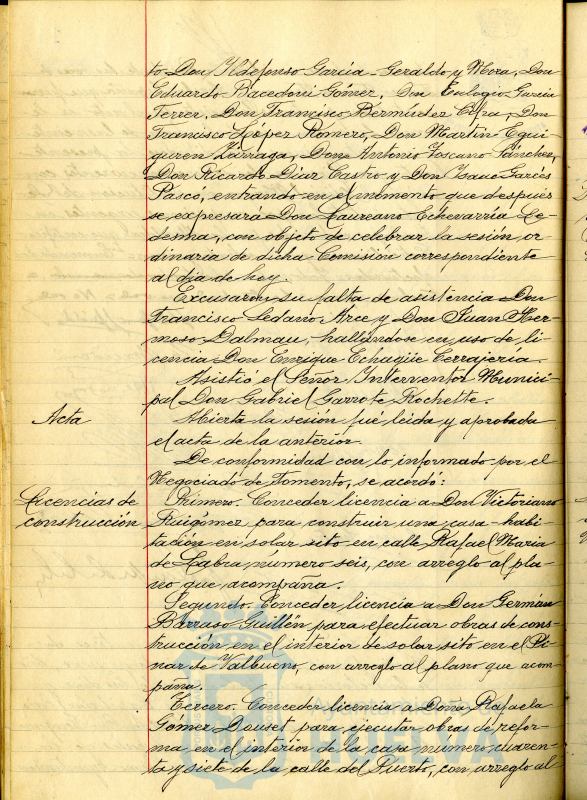 to Don Ildefonso García-Geraldo y Mora, Don
Eduardo Bacedoni Gómez, Don Eulogio García
Ferrer, Don Francisco Bermúdez Cifra, Don
Francisco López Romero, Don Martín Egui-
guren Lizrraga, Don Antonio Toscano Sánchez,
Don Ricardo Díaz Castro y Don Isaac García
Pascó, entrando en el momento que después
se expresará Don Laureano Echevarría Le-
desma, con objeto de celebrar la sesión or-
dinaria de dicha Comisión correspondiente
al día de hoy.
Excusaron su falta de asistencia Don
Francisco Sedano Arce y Don Juan Her-
moso Dalmau, hallándose en uso de li-
cencia Don Enrique Echagüe Cerrajería.
Asistió el Señor Interventor Munici-
pal Don Gabriel Garrote Rochette.
Acta
Abierta la sesión fué leída y aprobada
el acta de la anterior.
De conformidad con lo informado por el
Negociado de Fomento, se acordó:
Licencias de
construcción
Primero. Conceder licencia a Don Victoriano
Ruigómez para construir una casa-habi-
tación en solar sito en calle Rafael María
de Labra, número seis, con arreglo al pla-
no que acompaña.
Segundo. Conceder licencia a Don Germán
Barraso Guillén para efectuar obras de cons-
trucción en el interior de solar sito en el Pi-
nar de Valbueno, con arreglo al plano que acom-
paña.
Tercero. Conceder licencia a Doña Rafaela
Gómez Douset para ejecutar obras de refor-
ma en el interior de la casa número cuaren-
ta y siete de la calle del Puerto, con arreglo al